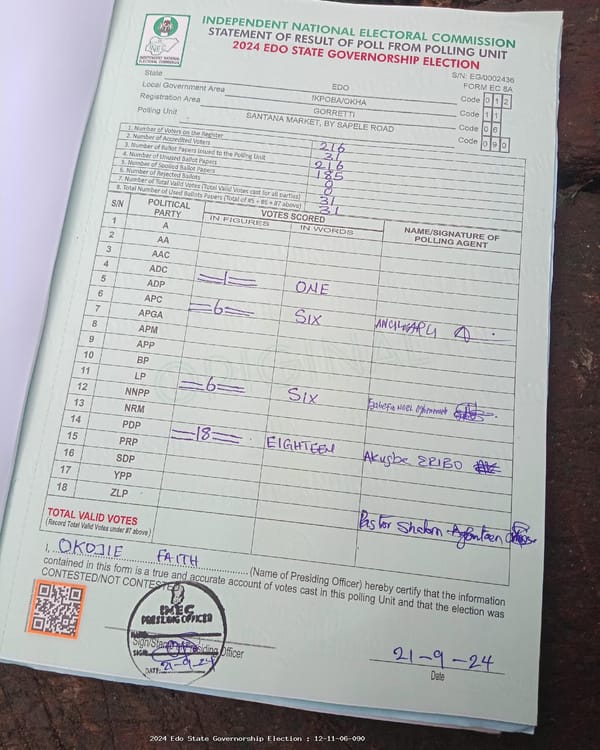 INDEPENDENT NATIONAL ELECTORAL COMMISSION
STATEMENT OF RESULT OF POLL FROM POLLING UNIT
2024 EDO STATE GOVERNORSHIP ELECTION
INEC
INDEPENDENT NATIONAL ELECTORAL COMMISSION
S/N: EG/0002436
FORM EC 8A
State EDO Code 012
Local Government Area IKPOBA/OKHA Code 11
Registration Area GORRETTI Code 06
Polling Unit SANTANA MARKET, BY SAPELE ROAD Code 090
1. Number of Voters on the Register 216
2. Number of Accredited Voters 31
3. Number of Ballot Papers Issued to the Polling Unit 216
4. Number of Unused Ballot Papers 185
5. Number of Spoiled Ballot Papers 0
6. Number of Rejected Ballots 0
7. Number of Total Valid Votes (Total Valid Votes cast for all parties) 31
8. Total Number of Used Ballots Papers (Total of #5 + #6 + #7 above) 31
S/N POLITICAL PARTY VOTES SCORED NAME/SIGNATURE OF POLLING AGENT
IN FIGURES IN WORDS
1 A
2 AA
3 AAC
4 ADC
5 ADP =1= ONE
6 APC =6= SIX
7 APGA
8 APM
9 APP
10 BP
11 LP =6= SIX
12 NNPP
13 NRM
14 PDP =18= EIGHTEEN
15 PRP Akugbe ERIBO
16 SDP
17 YPP
18 ZLP
Pastor Shalom
TOTAL VALID VOTES
(Record Total Valid Votes under #7 above)
ORIGINAL
I, OKOJIE FAITH (Name of Presiding Officer) hereby certify that the information
contained in this form is a true and accurate account of votes cast in this polling Unit and that the election was
CONTESTED/NOT CONTESTED
INEC
PRESIDING OFFICER
NAME:
Sign/Stamp of Presiding Officer
SIGN:
DATE: 21-9-24
21-9-24
Date
2024 Edo State Governorship Election : 12-11-06-090